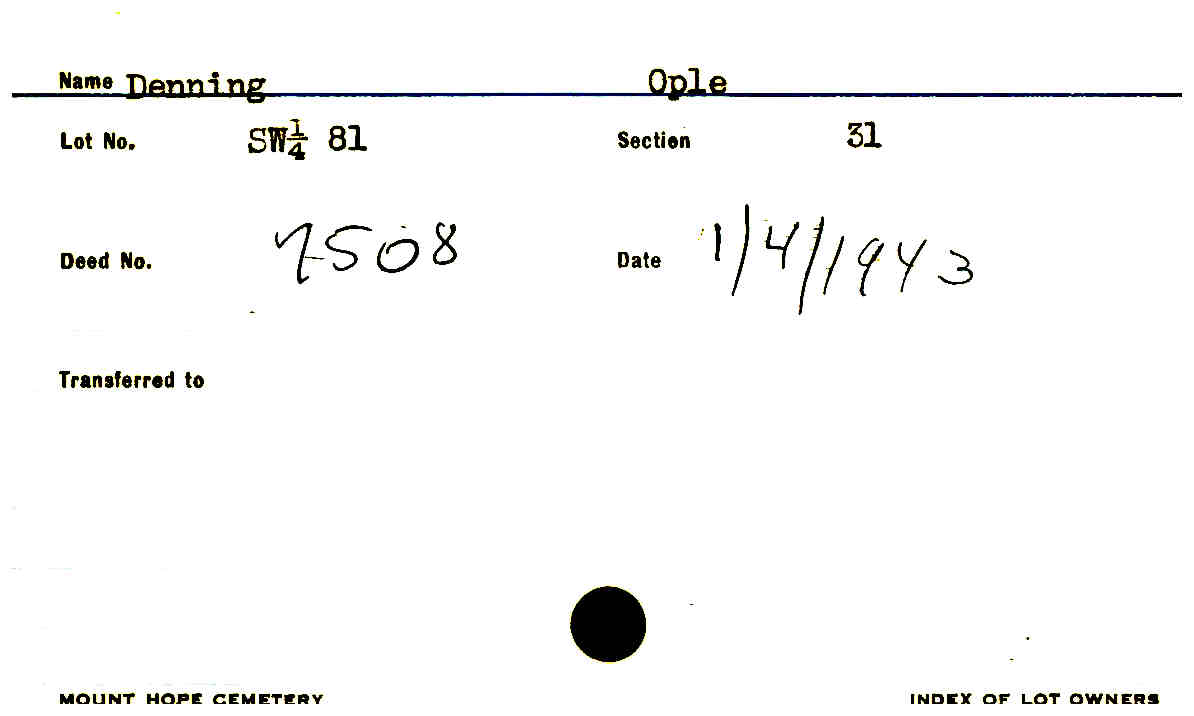 Name Denning Ople
Lot No. SW¼ 81 Section 31
Deed No. 7508 Date 1/4/1943
Transferred to
MOUNT HOPE CEMETERY INDEX OF LOT OWNERS